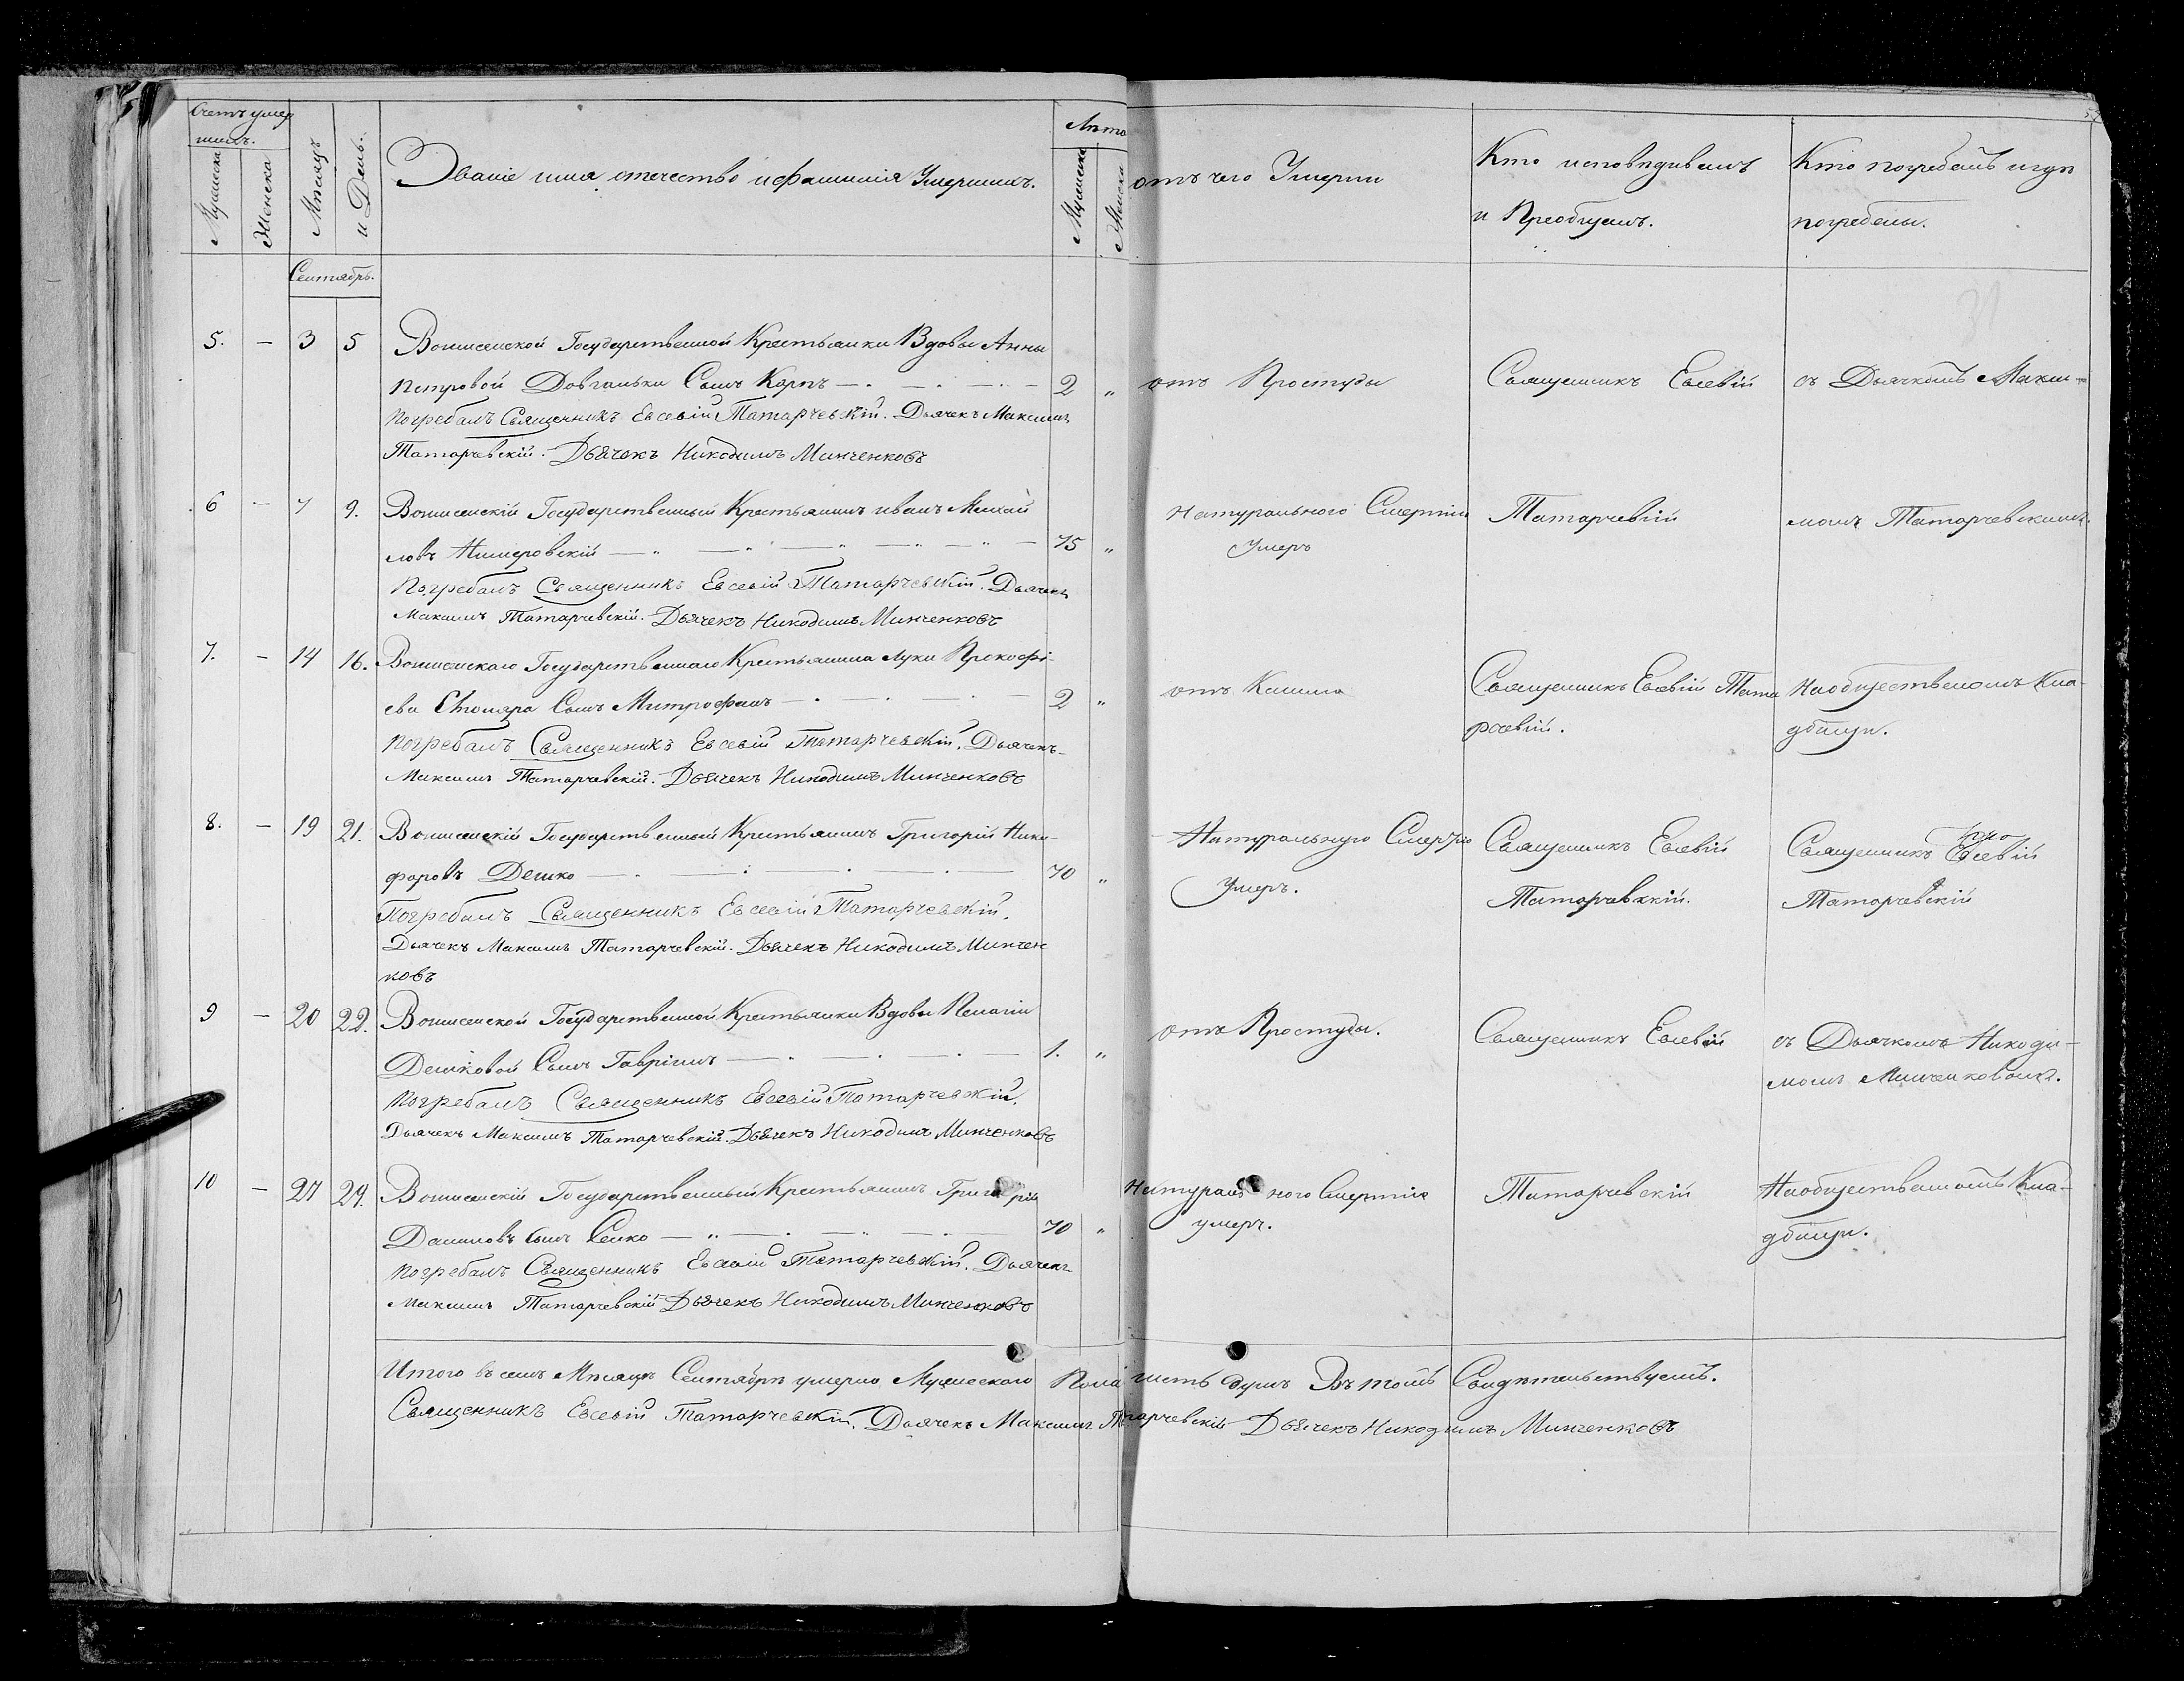 Счетъ умер
шихъ.
Мужеска
Женска
Мѣсяцъ
и День.
Званіе имя отечество и фамилія Умершихъ.
Лѣта
Мужеска
Женска
отъ чего Умерли
Кто исповѣдывалъ
и Преобщалъ.
Кто погребалъ и гдѣ
погребены.
Сентябрь.
31
5. — 3 5
Государственной Крестьянки Вдовы Анны
Петровой Довганьки Сынъ Карпъ — 2 „
Погребалъ Священникъ Евсевій Татарчевскій. Дьячекъ Максимъ
Татарчевскій. Дьячекъ Никодимъ Минченковъ
отъ Простуды
Священникъ Евсевій
съ Дьячкомъ Макси-
6 — 7 9.
Государственный Крестьянинъ иванъ Михай
ловъ Нимеровскій — 75 „
Погребалъ Священникъ Евсевій Татарчевскій. Дьячекъ
Максимъ Татарчевскій. Дьячекъ Никодимъ Минченковъ
натурального Смертію
Умеръ
Татарчевскій
момъ Татарчевскимъ.
7. — 14 16.
Государственнаго Крестьянина Луки Прокофі-
ева Столяра Сынъ Митрофанъ — 2 „
Погребалъ Священникъ Евсевій Татарчевскій. Дьячекъ
Максимъ Татарчевскій. Дьячекъ Никодимъ Минченковъ
отъ Кашля
Священникъ Евсевій Тата
рчевскій.
На общественномъ Кла-
дбищи.
8. — 19 21.
Государственный Крестьянинъ Григорій Ники-
форовъ Дешко — 70 „
Погребалъ Священникъ Евсевій Татарчевскій.
Дьячекъ Максимъ Татарчевскій. Дьячекъ Никодимъ Минчен
ковъ
Натуральную Смертію
Умеръ.
Священникъ Евсевій
Татарчевскій.
Священникъ Евсевій
Татарчевскій
9 — 20 22.
Государственной Крестьянки Вдовы Пелагіи
Дешковой Сынъ Гавріилъ — 1. „
Погребалъ Священникъ Евсевій Татарчевскій.
Дьячекъ Максимъ Татарчевскій. Дьячекъ Никодимъ Минченковъ
отъ Простуды.
Священникъ Евсевій
съ Дьячкомъ Никоди-
момъ Минченковымъ.
10 — 27 29.
Государственный Крестьянинъ Григорій
Даниловъ сынъ Сенко — 70 „
Погребалъ Священникъ Евсевій Татарчевскій. Дьячекъ
Максимъ Татарчевскій Дьячекъ Никодимъ Минченковъ
Натурального Смертію
умеръ.
Татарчевскій
На общественномъ Кла-
дбищи.
Итого въ семъ Мѣсяцѣ Сентябрѣ умерло Мужескаго Пола шесть душъ Въ томъ Свидѣтельствуемъ.
Священникъ Евсевій Татарчевскій. Дьячекъ Максимъ Татарчевскій Дьячекъ Никодимъ Минченковъ